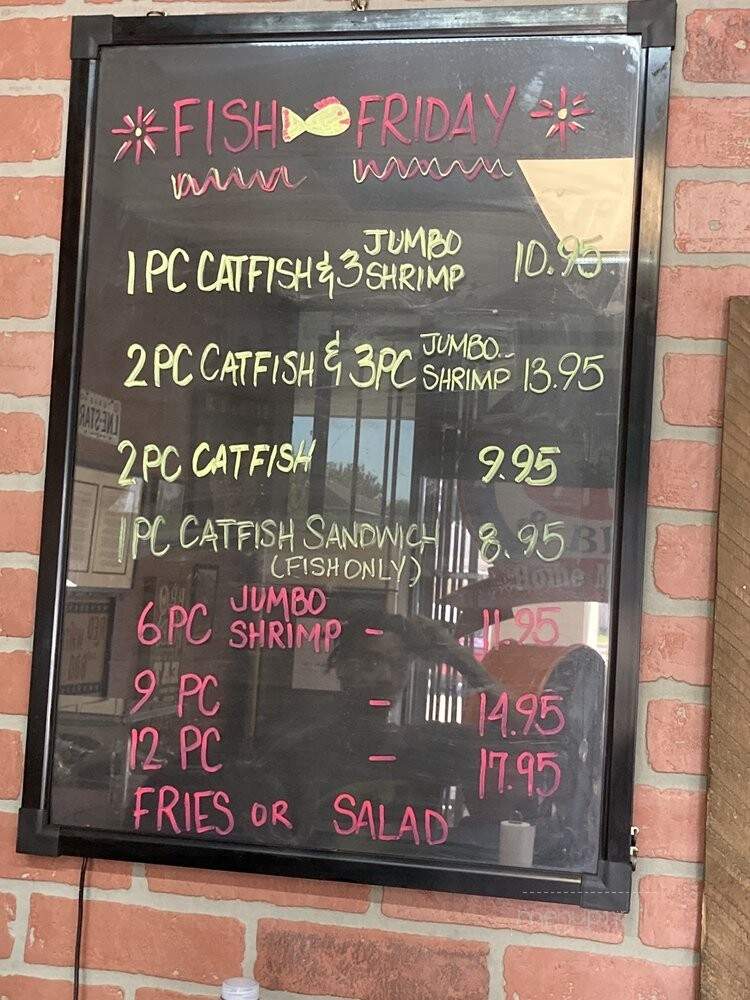 FISH FRIDAY
1 PC CATFISH & 3 JUMBO SHRIMP 10.95
2 PC CATFISH & 3PC JUMBO SHRIMP 13.95
2 PC CATFISH 9.95
1 PC CATFISH SANDWICH 8.95
(FISH ONLY)
6 PC JUMBO SHRIMP - 11.95
9 PC - 14.95
12 PC - 17.95
FRIES OR SALAD